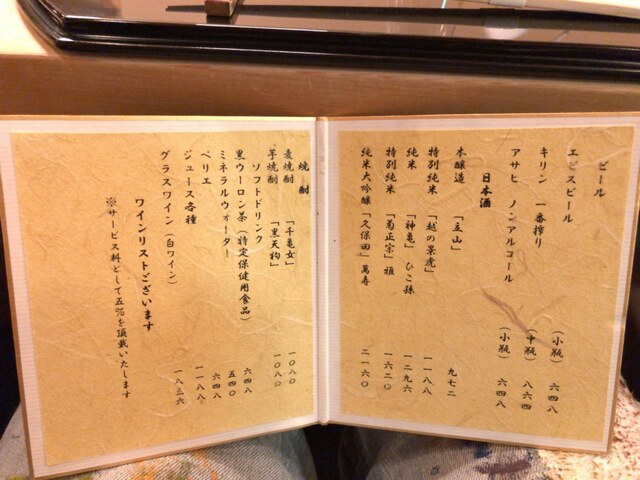 ビール
エビスビール （小瓶） 六四八
キリン 一番搾り （中瓶） 八六四
アサヒ ノンアルコール （小瓶） 六四八
日本酒
本醸造 「立山」 九七二
特別純米 「越の景虎」 一一八八
純米 「神亀」ひこ孫 一二九六
特別純米 「菊正宗」雅 一六二〇
純米大吟醸「久保田」萬寿 二一六〇
焼酎
麦焼酎 「千亀女」 一〇八〇
芋焼酎 「黒天狗」 一〇八〇
ソフトドリンク
黒ウーロン茶（特定保健用食品） 六四八
ミネラルウォーター 五四〇
ペリエ 六四八
ジュース各種 一一八八
グラスワイン（白ワイン） 一八三六
ワインリストございます
※サービス料として五%を頂戴いたします